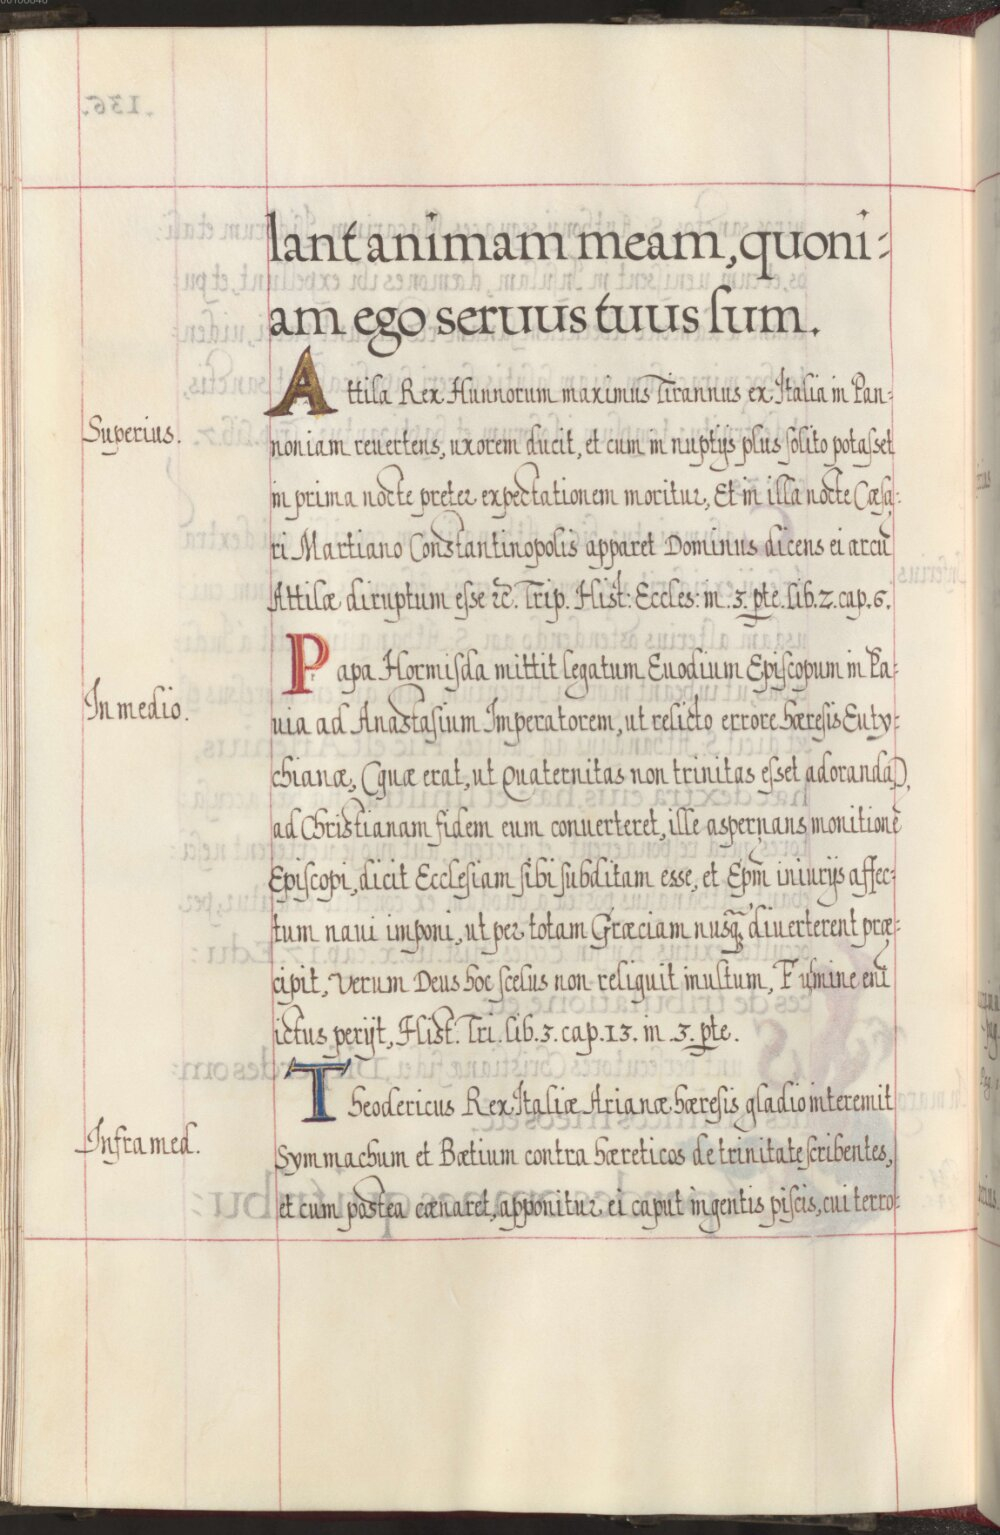 lant animam meam, quoni-
am ego seruus tuus sum.
Attila Rex Hunnorum maximus Tirannus ex Italia in Pan-
Superius.
noniam reuertens, uxorem ducit, et cum in nuptijs plus solito potasset
in prima nocte preter expectationem moritur, Et in illa nocte Cæsa-
ri Martiano Constantinopolis apparet Dominus dicens ei arcū
Attilæ diruptum esse &c̄. Trip. Hist: Eccles: in .3. pte. lib. 2. cap. 6.
Papa Hormisda mittit legatum Euodium Episcopum in Pa-
In medio.
uia ad Anastasium Imperatorem, ut relicto errore hæresis Euty-
chianæ, (quæ erat, ut Quaternitas non trinitas esset adoranda),
ad Christianam fidem eum conuerteret, ille aspernans monitionē
Episcopi, dicit Ecclesiam sibi subditam esse, et Ep̄m iniurijs affec-
tum naui imponi, ut per totam Græciam nusq̃ diuerterent præ-
cipit, Verum Deus hoc scelus non reliquit inultum, Fulmine enī
ictus perijt, Hist. Tri. lib. 3. cap. 13. in .3. pte.
Theodericus Rex Italiæ Arianæ hæresis gladio interemit
Infra med.
Symmachum et Bœtium contra hæreticos de trinitate scribentes,
et cum postea cœnaret, apponitur ei caput ingentis piscis, cui terro-